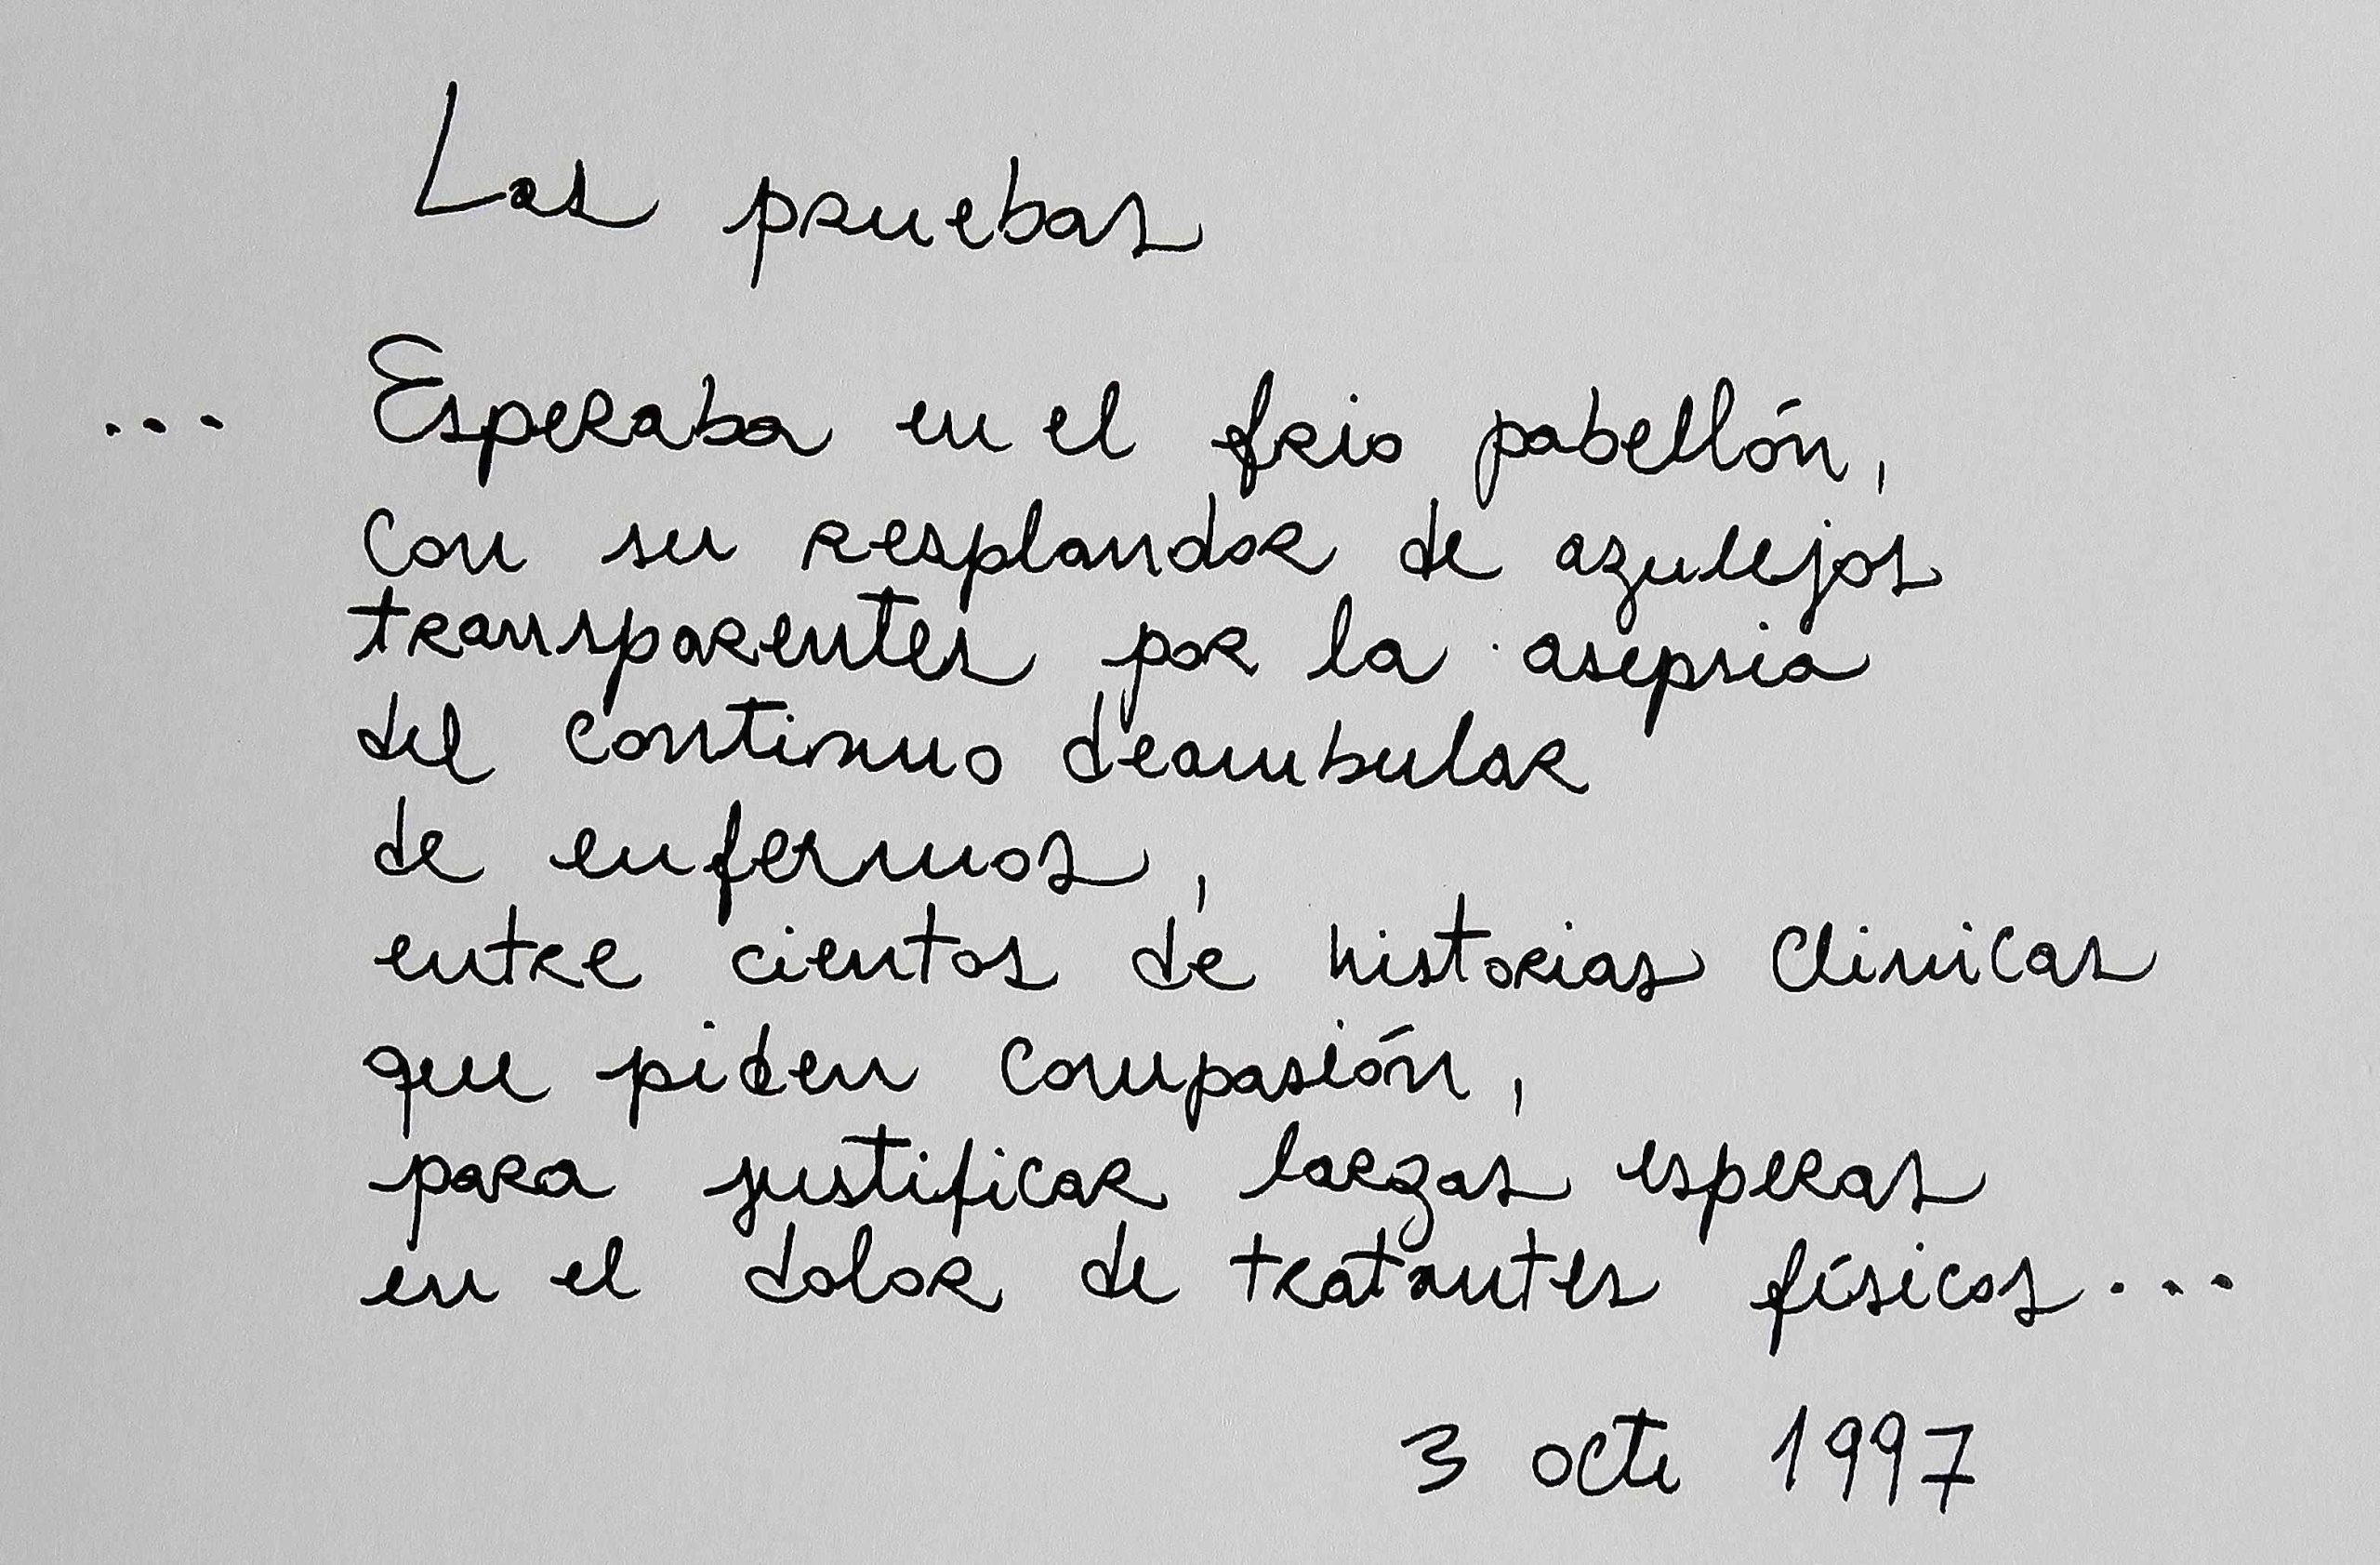 Las pruebas
... Esperaba en el frio pabellón,
con su resplandor de azulejos
transparentes por la asepsia
del continuo deambular
de enfermos,
entre cientos de historias clinicas
que piden compasión,
para justificar largas esperas
en el dolor de tratantes físicos...
3 oct 1997